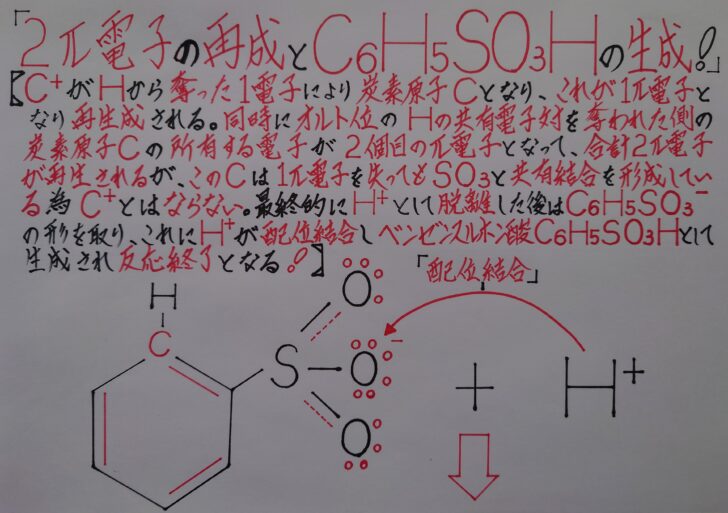 「2π電子の再成とC6H5SO3Hの生成!」
【C+がHから奪った1電子により炭素原子Cとなり、これが1π電子と
なり再生成される。同時にオルト位のHの共有電子対を奪われた側の
炭素原子Cの所有する電子が2個目のπ電子となって、合計2π電子
が再生されるが、このCは1π電子を失ってもSO3と共有結合を形成してい
る為C+とはならない。最終的にH+として脱離した後はC6H5SO3-
の形を取り、これにH+が配位結合しベンゼンスルホン酸C6H5SO3Hとして
生成され反応終了となる!】
「配位結合」
H
C
S
O
O-
O
+
H+